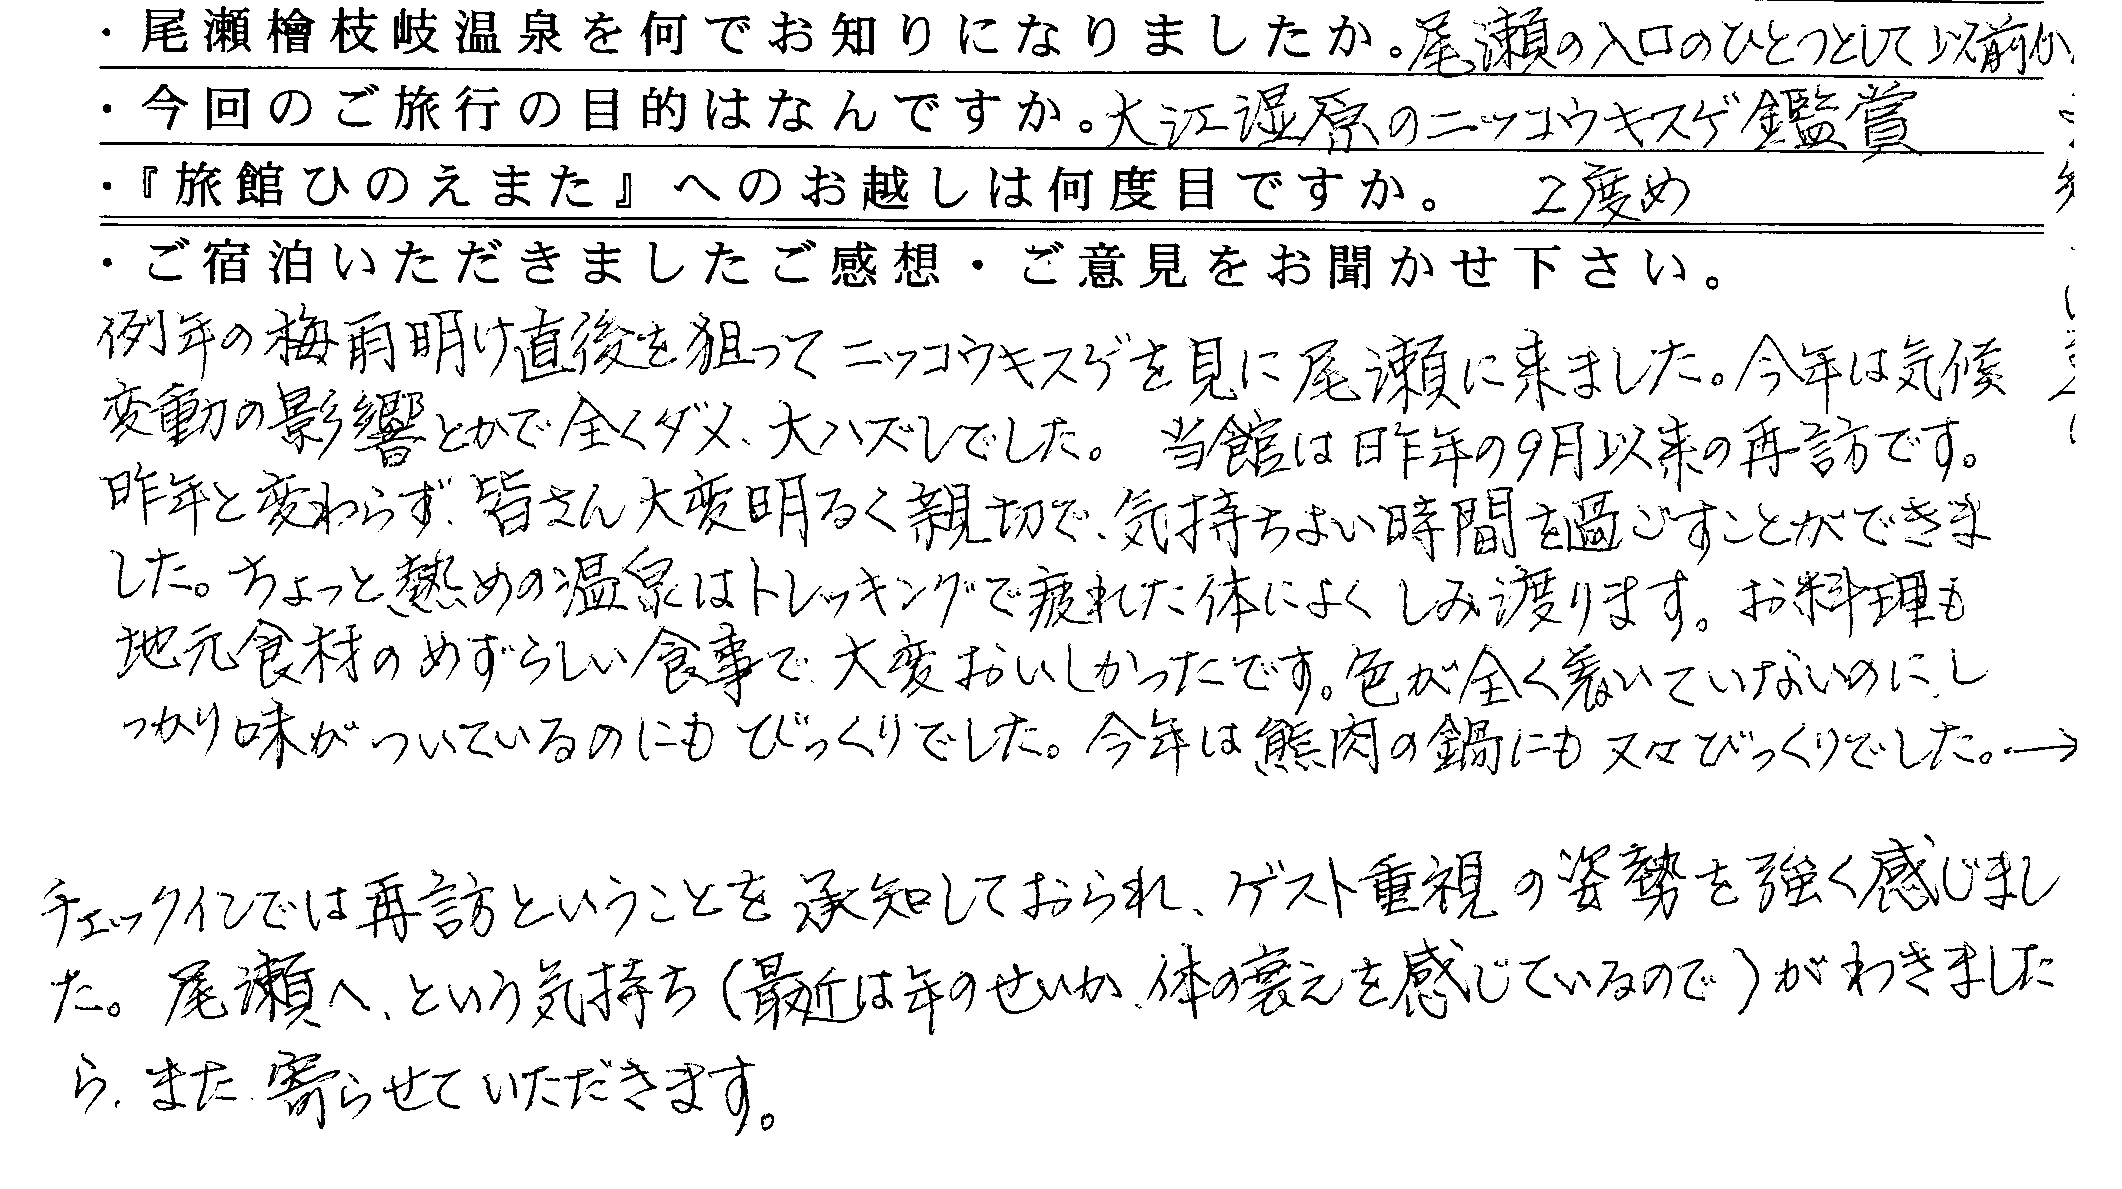 ・尾瀬檜枝岐温泉を何でお知りになりましたか。尾瀬の入口のひとつとして以前から
・今回のご旅行の目的はなんですか。大江湿原のニッコウキスゲ鑑賞
・『旅館ひのえまた』へのお越しは何度目ですか。 2度め
・ご宿泊いただきましたご感想・ご意見をお聞かせ下さい。
例年の梅雨明け直後を狙ってニッコウキスゲを見に尾瀬に来ました。今年は気候
変動の影響とかで全くダメ、大ハズレでした。 当館は昨年の9月以来の再訪です。
昨年と変わらず、皆さん大変明るく親切で、気持ちよい時間を過ごすことができま
した。ちょっと熱めの温泉はトレッキングで疲れた体によくしみ渡ります。お料理も
地元食材のめずらしい食事で、大変おいしかったです。色が全く着いていないのに、し
っかり味がついているのにもびっくりでした。今年は熊肉の鍋にも又々びっくりでした。→
チェックインでは再訪ということを承知しておられ、ゲスト重視の姿勢を強く感じまし
た。尾瀬へ、という気持ち(最近は年のせいか、体の衰えを感じているので)がわきました
ら、また、寄らせていただきます。